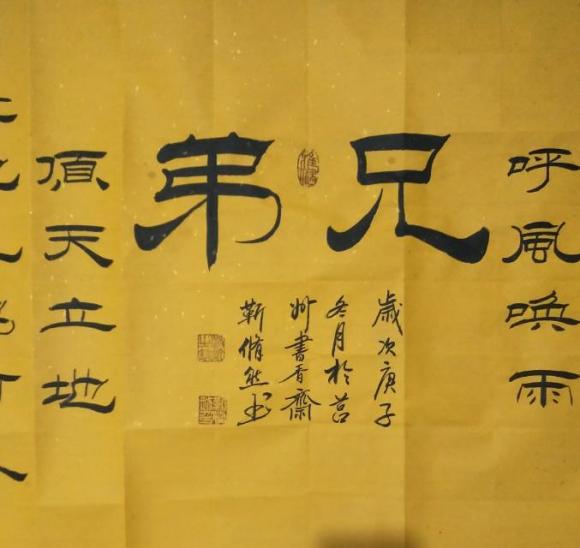 呼風喚雨
兄弟
歲次庚子
冬月於莒
州書香齋
靳脩然书
頂天立地